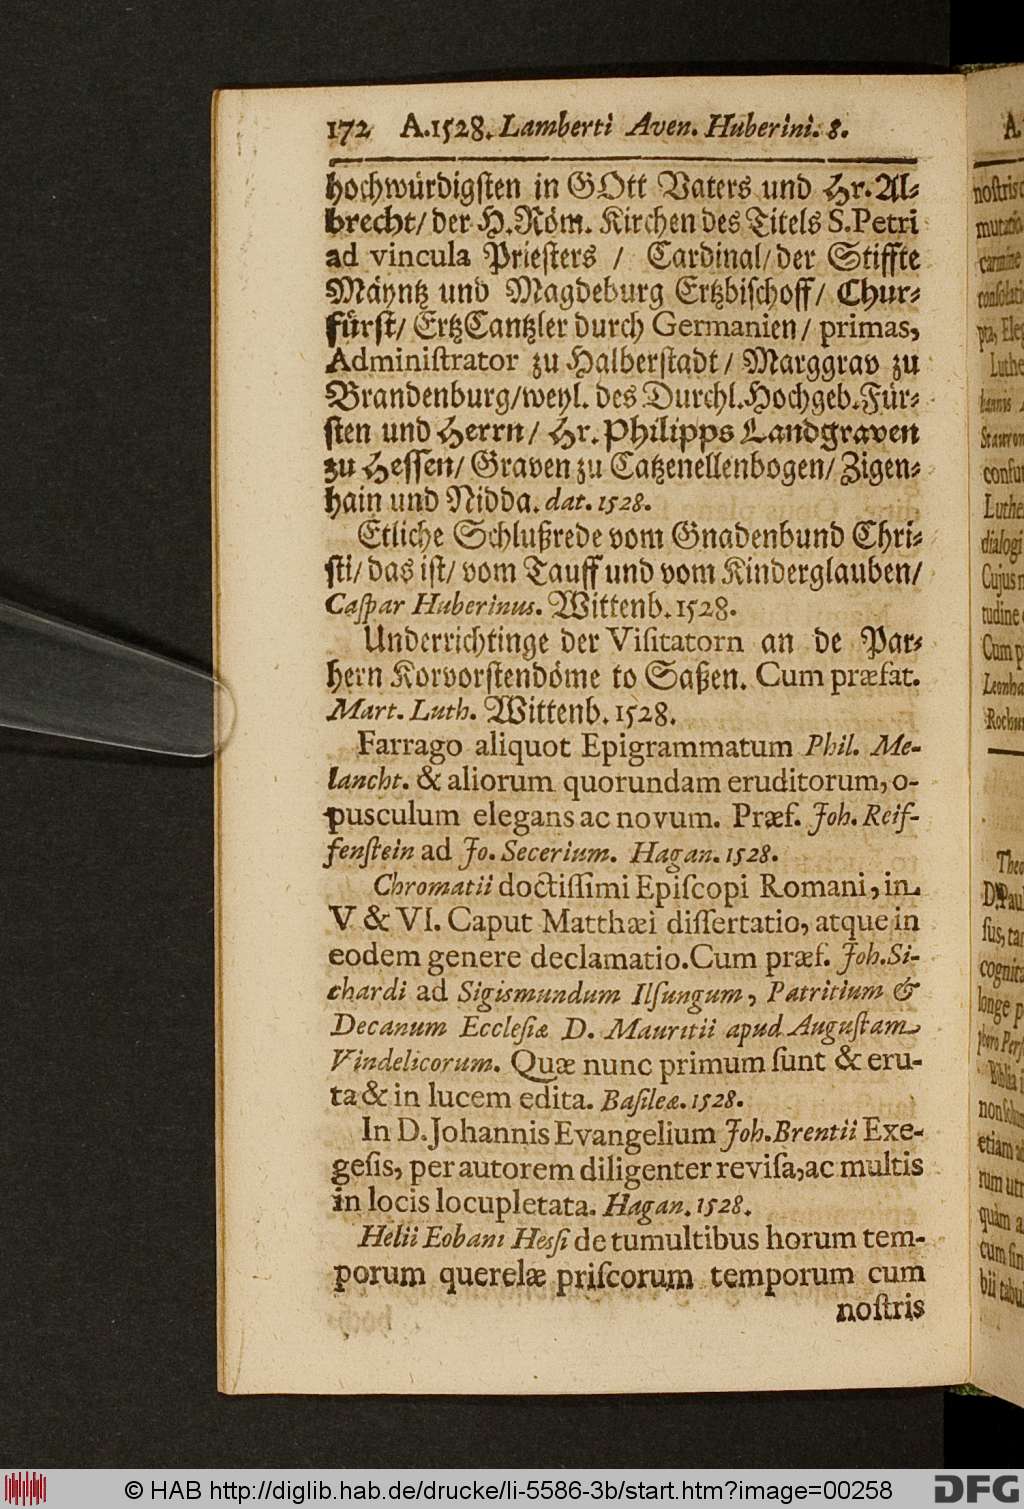 172 A.1528. Lamberti Aven. Huberini. 8.
hochwürdigsten in GOtt Vaters und Hr. Al⸗
brecht/ der H. Röm. Kirchen des Titels S. Petri
ad vincula Priesters / Cardinal/ der Stiffte
Mäyntz und Magdeburg Ertzbischoff/ Chur⸗
fürst/ ErtzCantzler durch Germanien/ primas,
Adminiſtrator zu Halberstadt/ Marggrav zu
Brandenburg/weyl. des Durchl. Hochgeb. Für⸗
sten und Herrn/ Hr. Philipps Landgraven
zu Hessen/ Graven zu Catzenellenbogen/ Zigen⸗
hain und Nidda. dat. 1528.
Etliche Schlußrede vom Gnadenbund Chri⸗
sti/ das ist/ vom Tauff und vom Kinderglauben/
Caſpar Huberinus. Wittenb. 1528.
Underrichtinge der Viſitatorn an de Par⸗
hern Korvorstendöme to Saßen. Cum præfat.
Mart. Luth. Wittenb. 1528.
Farrago aliquot Epigrammatum Phil. Me-
lancht. & aliorum quorundam eruditorum, o-
pusculum elegans ac novum. Præf. Joh. Reif-
fenſtein ad Jo. Secerium. Hagan. 1528.
Chromatii doctiſſimi Epiſcopi Romani, in
V & VI. Caput Matthæi diſſertatio, atque in
eodem genere declamatio. Cum præf. Joh. Si-
chardi ad Sigismundum Ilſungum, Patritium &
Decanum Eccleſiæ D. Mauritii apud Auguſtam
Vindelicorum. Quæ nunc primum ſunt & eru-
ta & in lucem edita. Baſileæ. 1528.
In D. Johannis Evangelium Joh. Brentii Exe-
geſis, per autorem diligenter reviſa, ac multis
in locis locupletata. Hagan. 1528.
Helii Eobani Heſſi de tumultibus horum tem-
porum querelæ priſcorum temporum cum
noſtris
© HAB http://diglib.hab.de/drucke/li-5586-3b/start.htm?image=00258
DFG